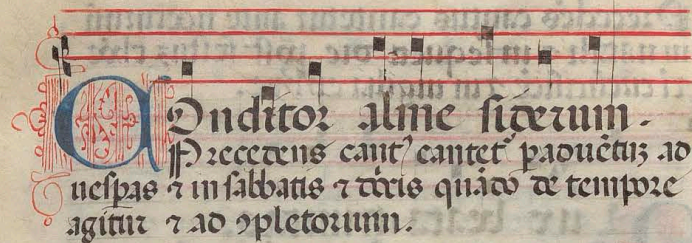 Conditor alme siderum.
Precedens cant᾽ cantet᾽ p aduētuȝ ad
uespas ⁊ in sabbatis ⁊ dōīcis quādo de tempore
agitur ⁊ ad ꝯpletorium.